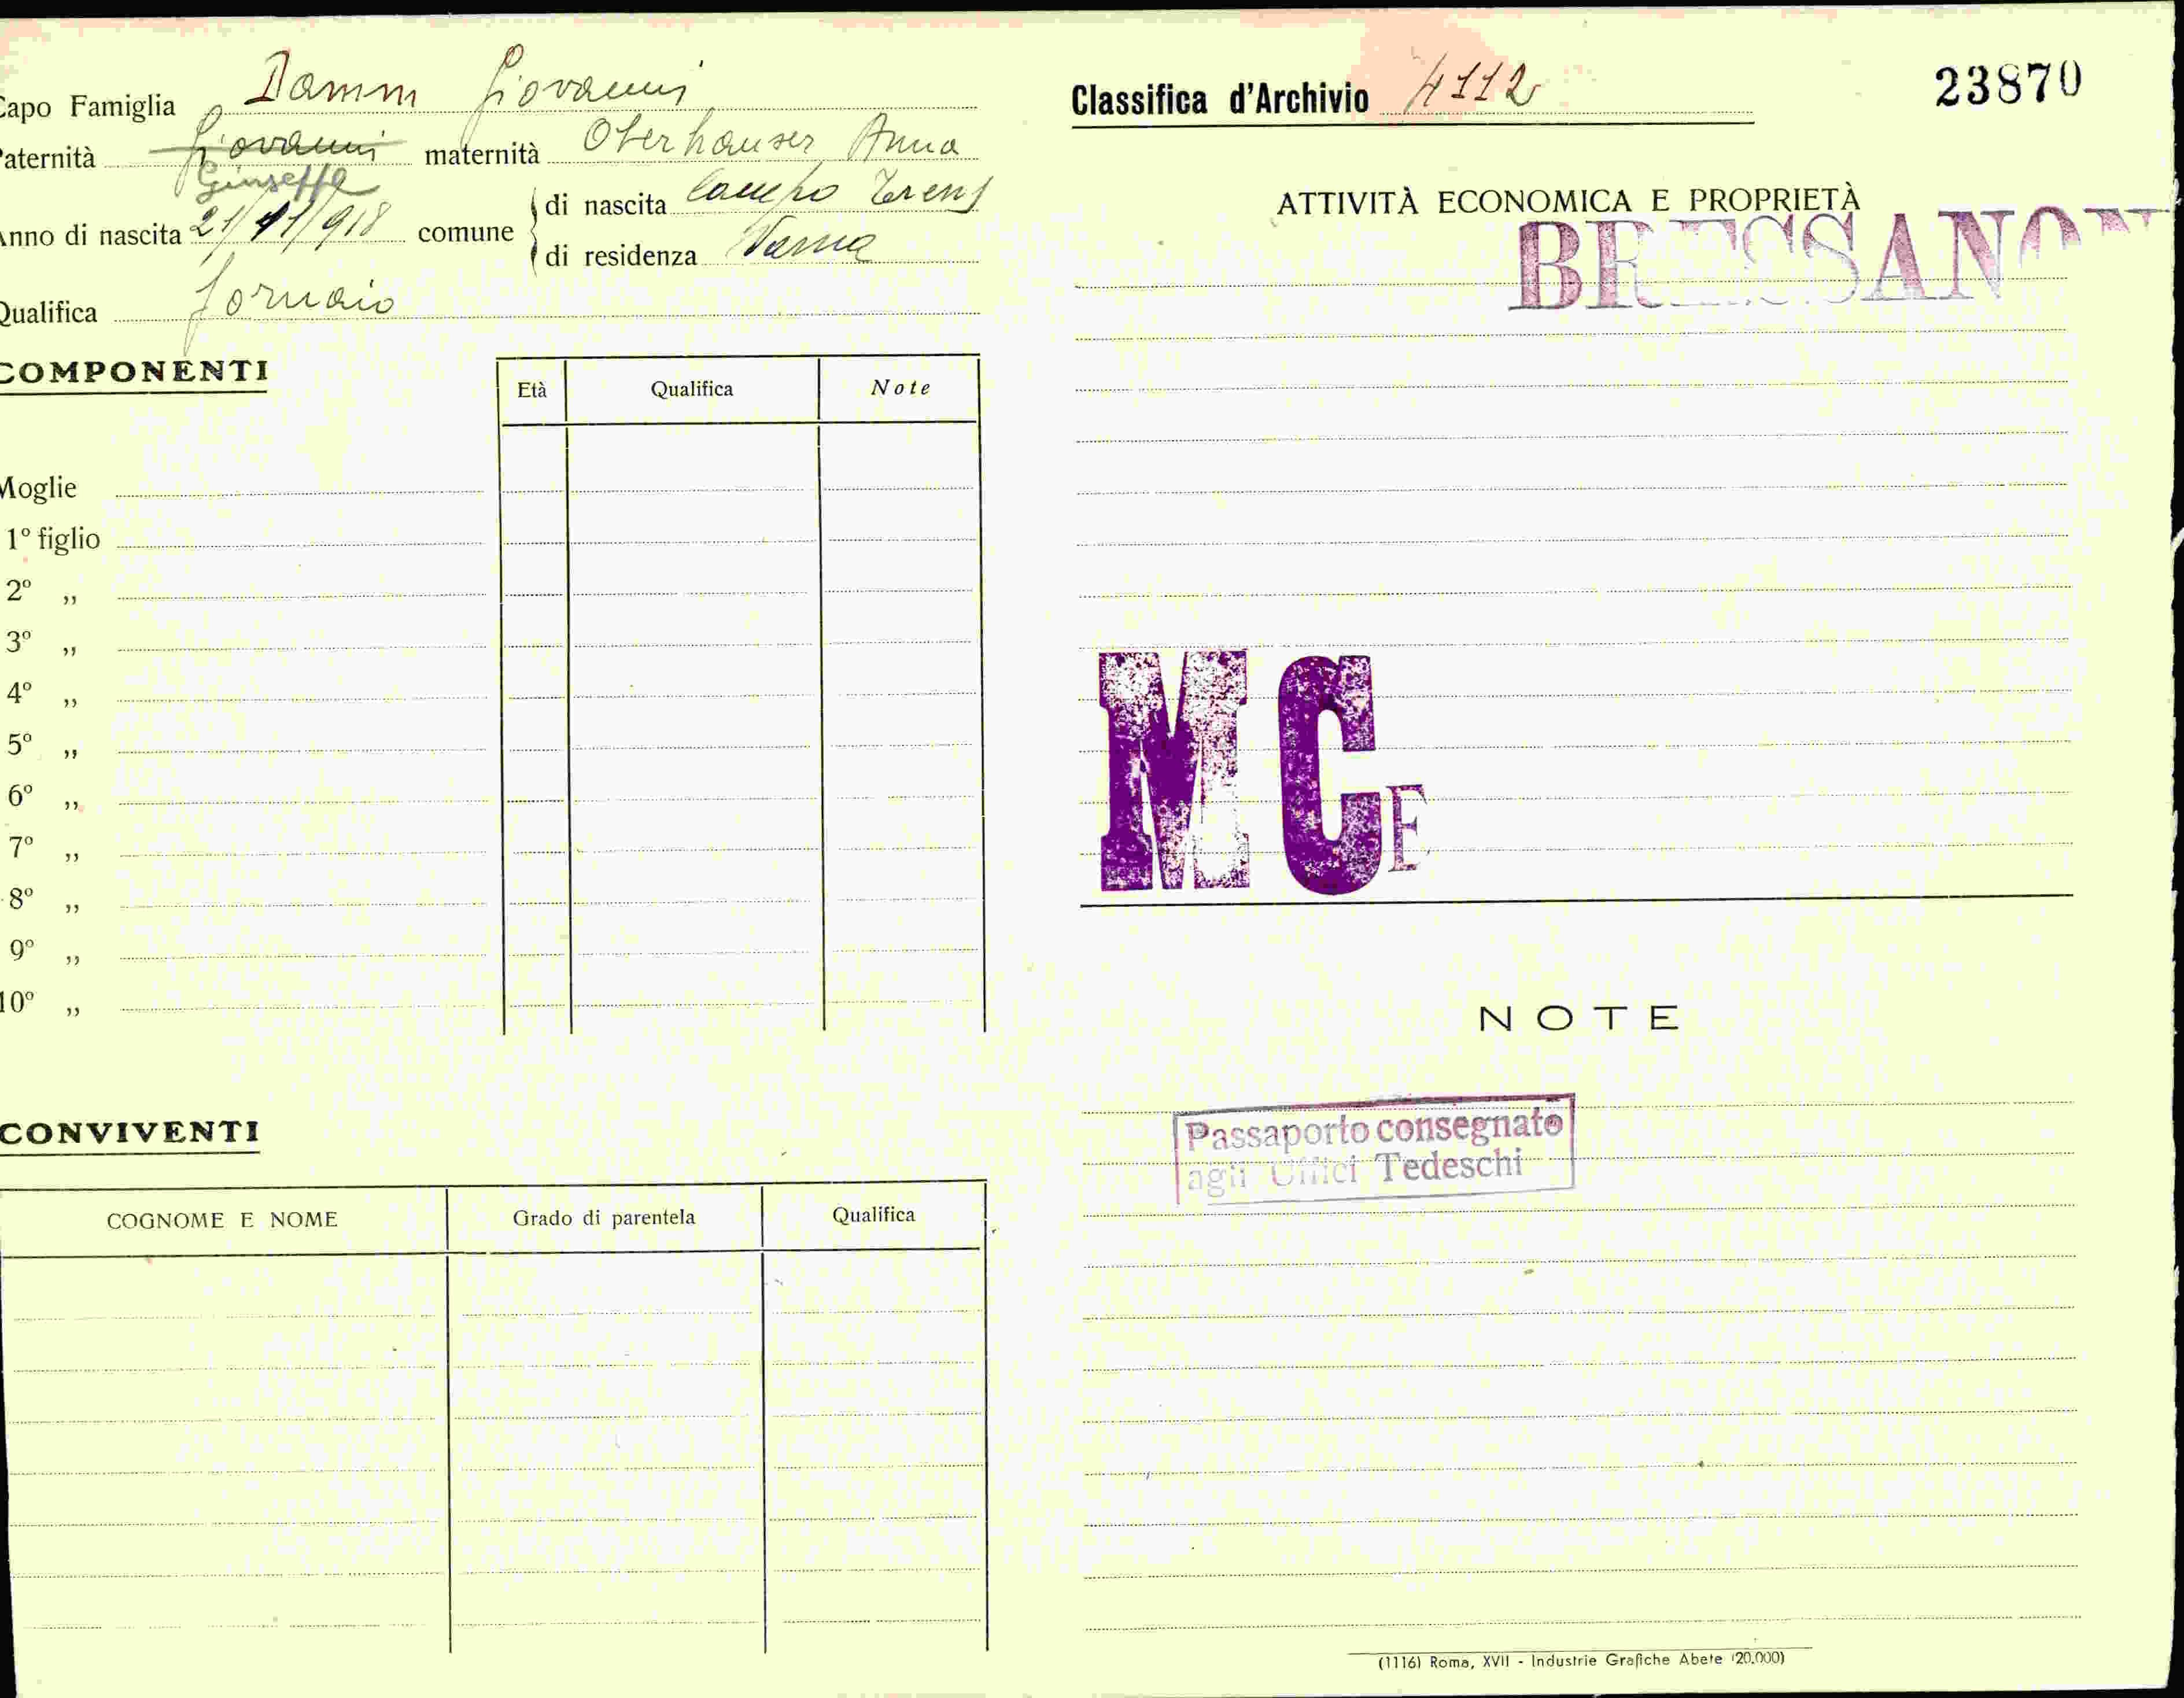 Capo Famiglia Damm Giovanni
Paternità Giovanni maternità Oberhauser Anna
Giuseppe
Anno di nascita 21/11/918 comune di nascita Campo Trens
di residenza Varna
Qualifica fornaio
COMPONENTI
Età Qualifica Note
Moglie
1º figlio
2º „
3º „
4º „
5º „
6º „
7º „
8º „
9º „
10º „
CONVIVENTI
COGNOME E NOME Grado di parentela Qualifica
Classifica d'Archivio 4112
23870
ATTIVITÀ ECONOMICA E PROPRIETÀ
BRESSANON
MCE
NOTE
Passaporto consegnato
agli Uffici Tedeschi
(1116) Roma, XVII - Industrie Grafiche Abete (20.000)